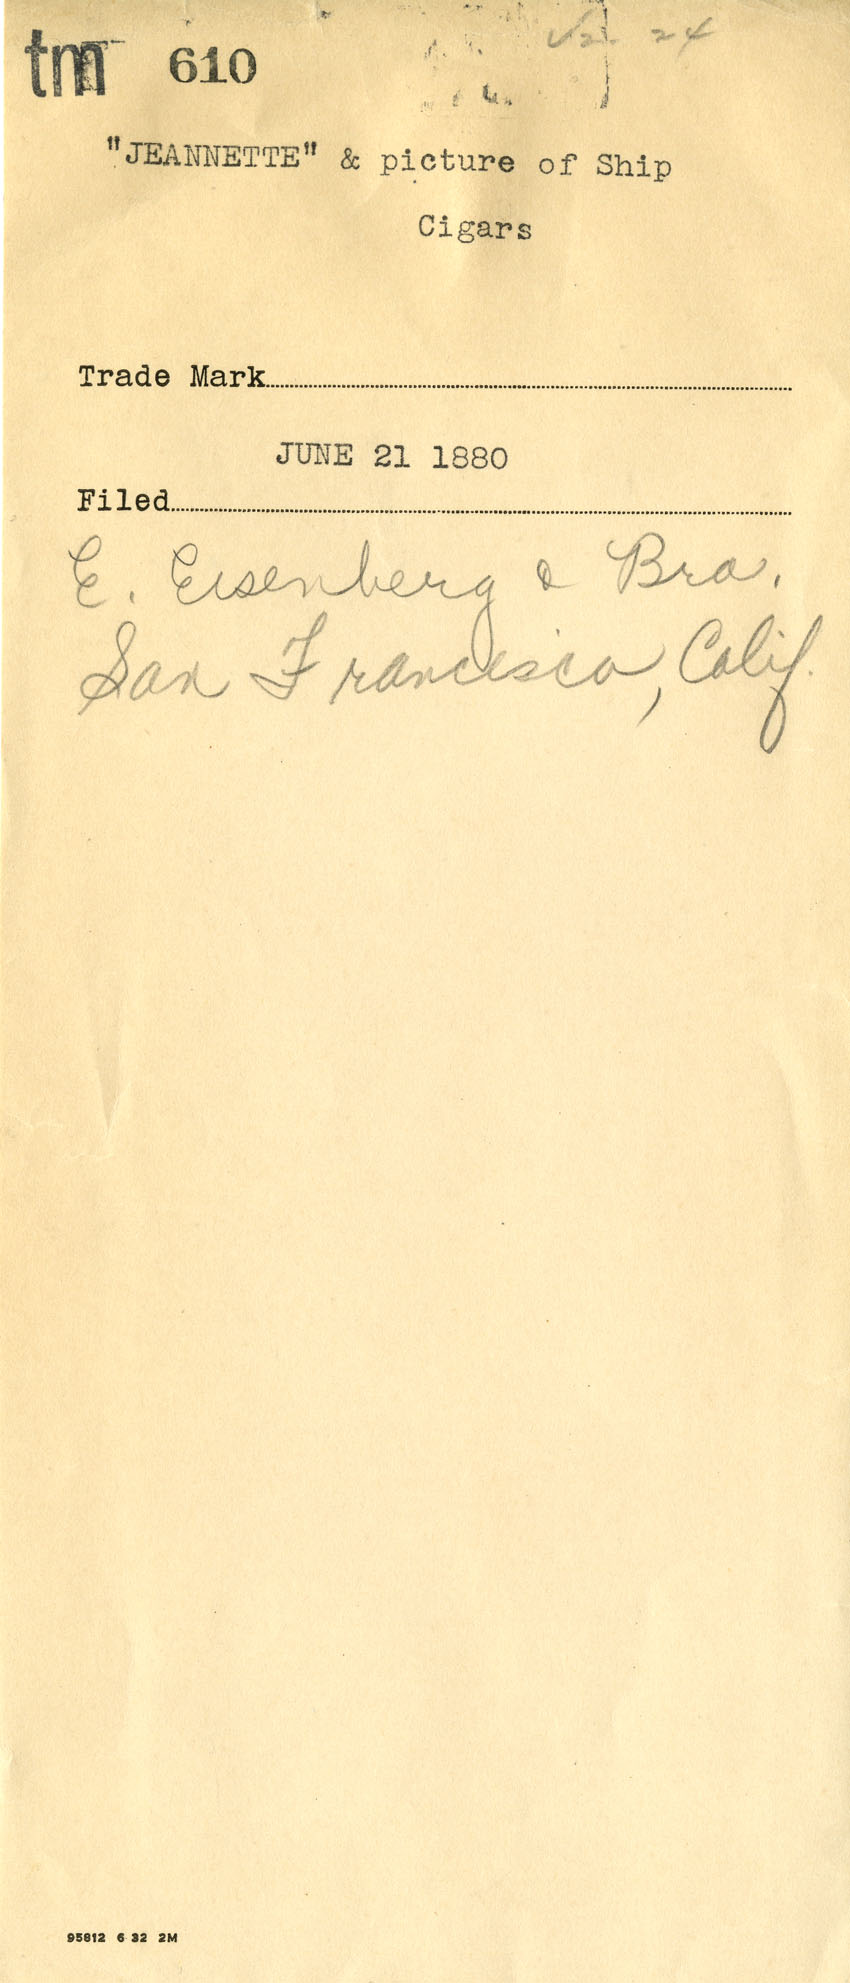 tm 610
"JEANNETTE" & picture of Ship
Cigars
Trade Mark
JUNE 21 1880
Filed
E. Eisenberg & Bro.
San Francisco, Calif.
95812 6 32 2M